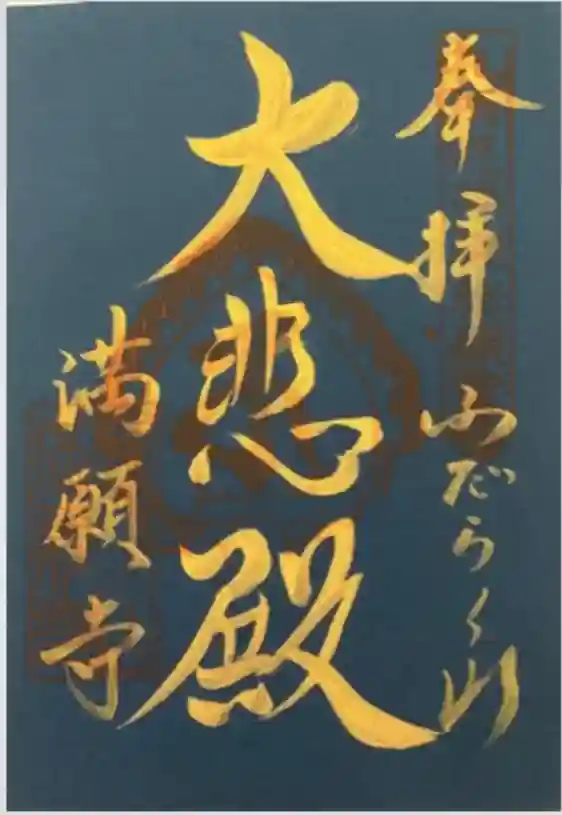 奉拝 ふだらく山
大悲殿
満願寺